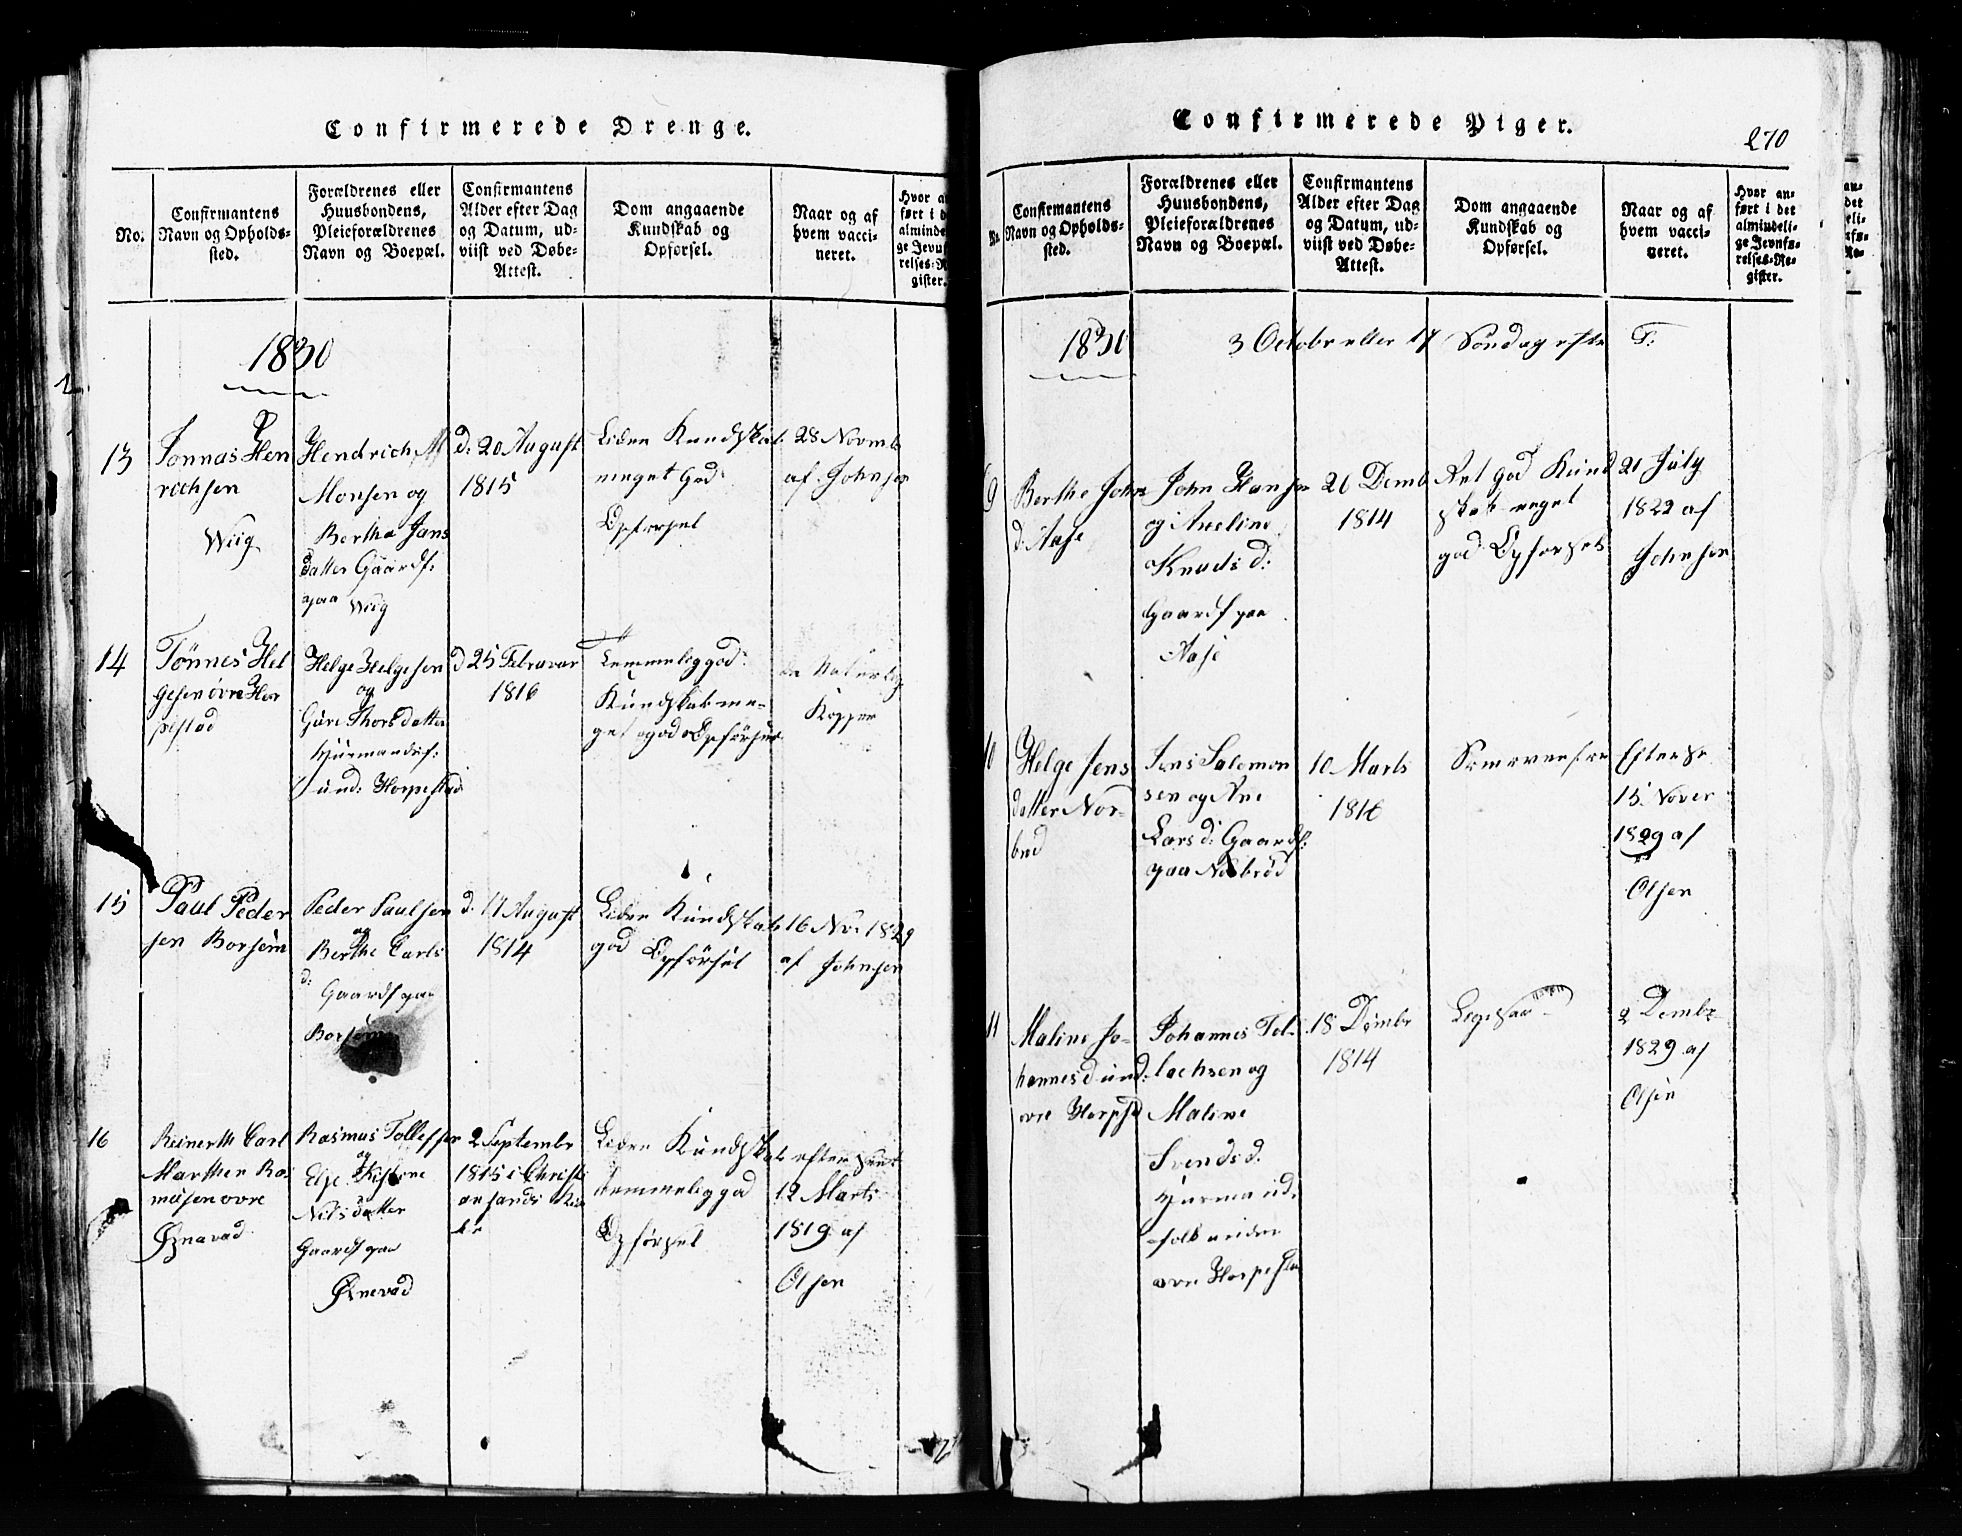 Confirmerede Drenge.
No.
Confirmantens
Navn og Opholds-
sted.
Forældrenes eller
Huusbondens,
Pleieforældrenes
Navn og Boepæl.
Confirmantens
Alder efter Dag
og Datum, ud-
viist ved Døbe-
Attest.
Dom angaaende
Kundskab og
Opførsel.
Naar og af
hvem vacci-
neret.
1830
13
Tonnas Hen
richsen
Wiig
Hendrich
Monsen og
Bertha Jans
datter Gaardf:
paa Wiig
d: 20 August
1815
Liden Kundskab
meget God
Opførsel
28 Novemb
af Johnsen
14
Tönnes Hel
gesen övre Hor
pestad
Helge Helgesen
og
Guri Thorsdatter
Huusmandsf:
und: Horpestad
d 25 Februar
1816
Temmelig god
Kundskab me-
get god Opförsel
Naturlig
Kopper
15
Paul Peder
sen Borsem
Peder Paulsen
og
Berthe Carls
d:
Gaardf paa
d. 17 August
1814
Liden Kundskab
god Opförsel
16 No. 1829
af Johnsen
16
Reinerth Carl
Marthen Ra-
musen ovre
Øznavad
Rasmus Tollefsen
og
Else Kistine
Nilsdatter
Gaardf paa
Øznevad
2 Septembr
1815 i Christi
ansands Kir
ke
Liden Kundskab
temmelig god
Opförsel
12 Marts
1819 af
Olsen
Confirmerede Piger.
270
No.
Confirmantens
Navn og Opholds-
sted.
Forældrenes eller
Huusbondens,
Pleieforældrenes
Navn og Boepæl.
Confirmantens
Alder efter Dag
og Datum, ud-
viist ved Døbe-
Attest.
Dom angaaende
Kundskab og
Opførsel.
Naar og af
hvem vacci-
neret.
Hvor an-
ført i det
almindeli-
ge Jevnfø-
relses-Re-
gister.
1830
3 Octobr eller 17 Söndag efter T:
9
Berthe Johns
d: Aase
John Hansen
og Aneline
Knuds d:
Gaardf paa
Aase
20 Demb
1814
Ret god Kund
skab meget
god Opforsel
21 July
1822 af
Johnsen
10
Helge Jens
datter Nor-
bud
Jens Salomon
sen og Ane
Lars d: Gaardf:
paa Norbröd
10 Marts
1816
15. Nover
1829 af
Olsen
11
Maline Jo-
hannes d und:
ovre Horpst
Johannes Tol-
lachsen og
Maline
Svends d.
Huusmand:
folk under
ovre Horpesta
18 Dembr
1814
Ligesaa
2 Dembr
1829 af
Olsen